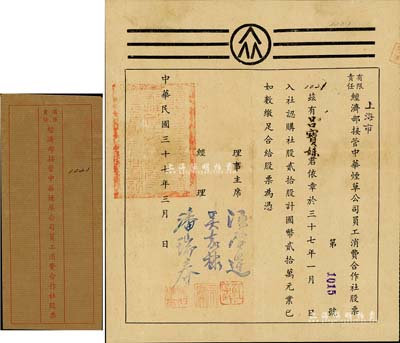 上海市
有限
責任
經濟部接管中華煙草公司員工消費合作社股票
第 1015 號
茲有呂寶妹君依章於三十七年一月 日
入社認購社股貳拾股計國幣貳拾萬元業已
如數繳足合給股票為憑
理事主席
經理
潘瑞春
中華民國三十七年三月 日
有限
責任
經濟部接管中華煙草公司員工消費合作社股票